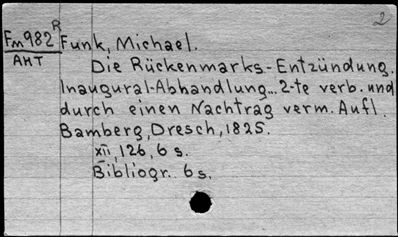 2
Fm982 R Funk, Michael.
АНТ
Die Rückenmarks-Entzündung.
Inaugural-Abhandlung... 2-te verb. und
durch einen Nachtrag verm. Aufl.
Bamberg, Dresch, 1825.
XII, 126, 6 s.
Bibliogr. 6 s.